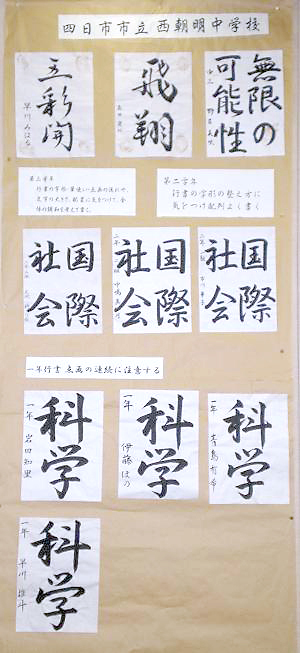 四日市市立西朝明中学校
無限の
可能性
飛翔
五彩開
早川みはる
第三学年
行書の字形・筆使い・点画の流れや、
文字の大きさ、配置に気をつけて、全
体の調和を考えて書く。
第二学年
行書の字形の整え方に
気をつけ配列よく書く
国際
社会
国際
社会
国際
社会
一年行書 点画の連続に注意する
科学
一年
科学
一年 伊藤ほの
科学
一年 岩田知里
科学
一年 早川雄斗